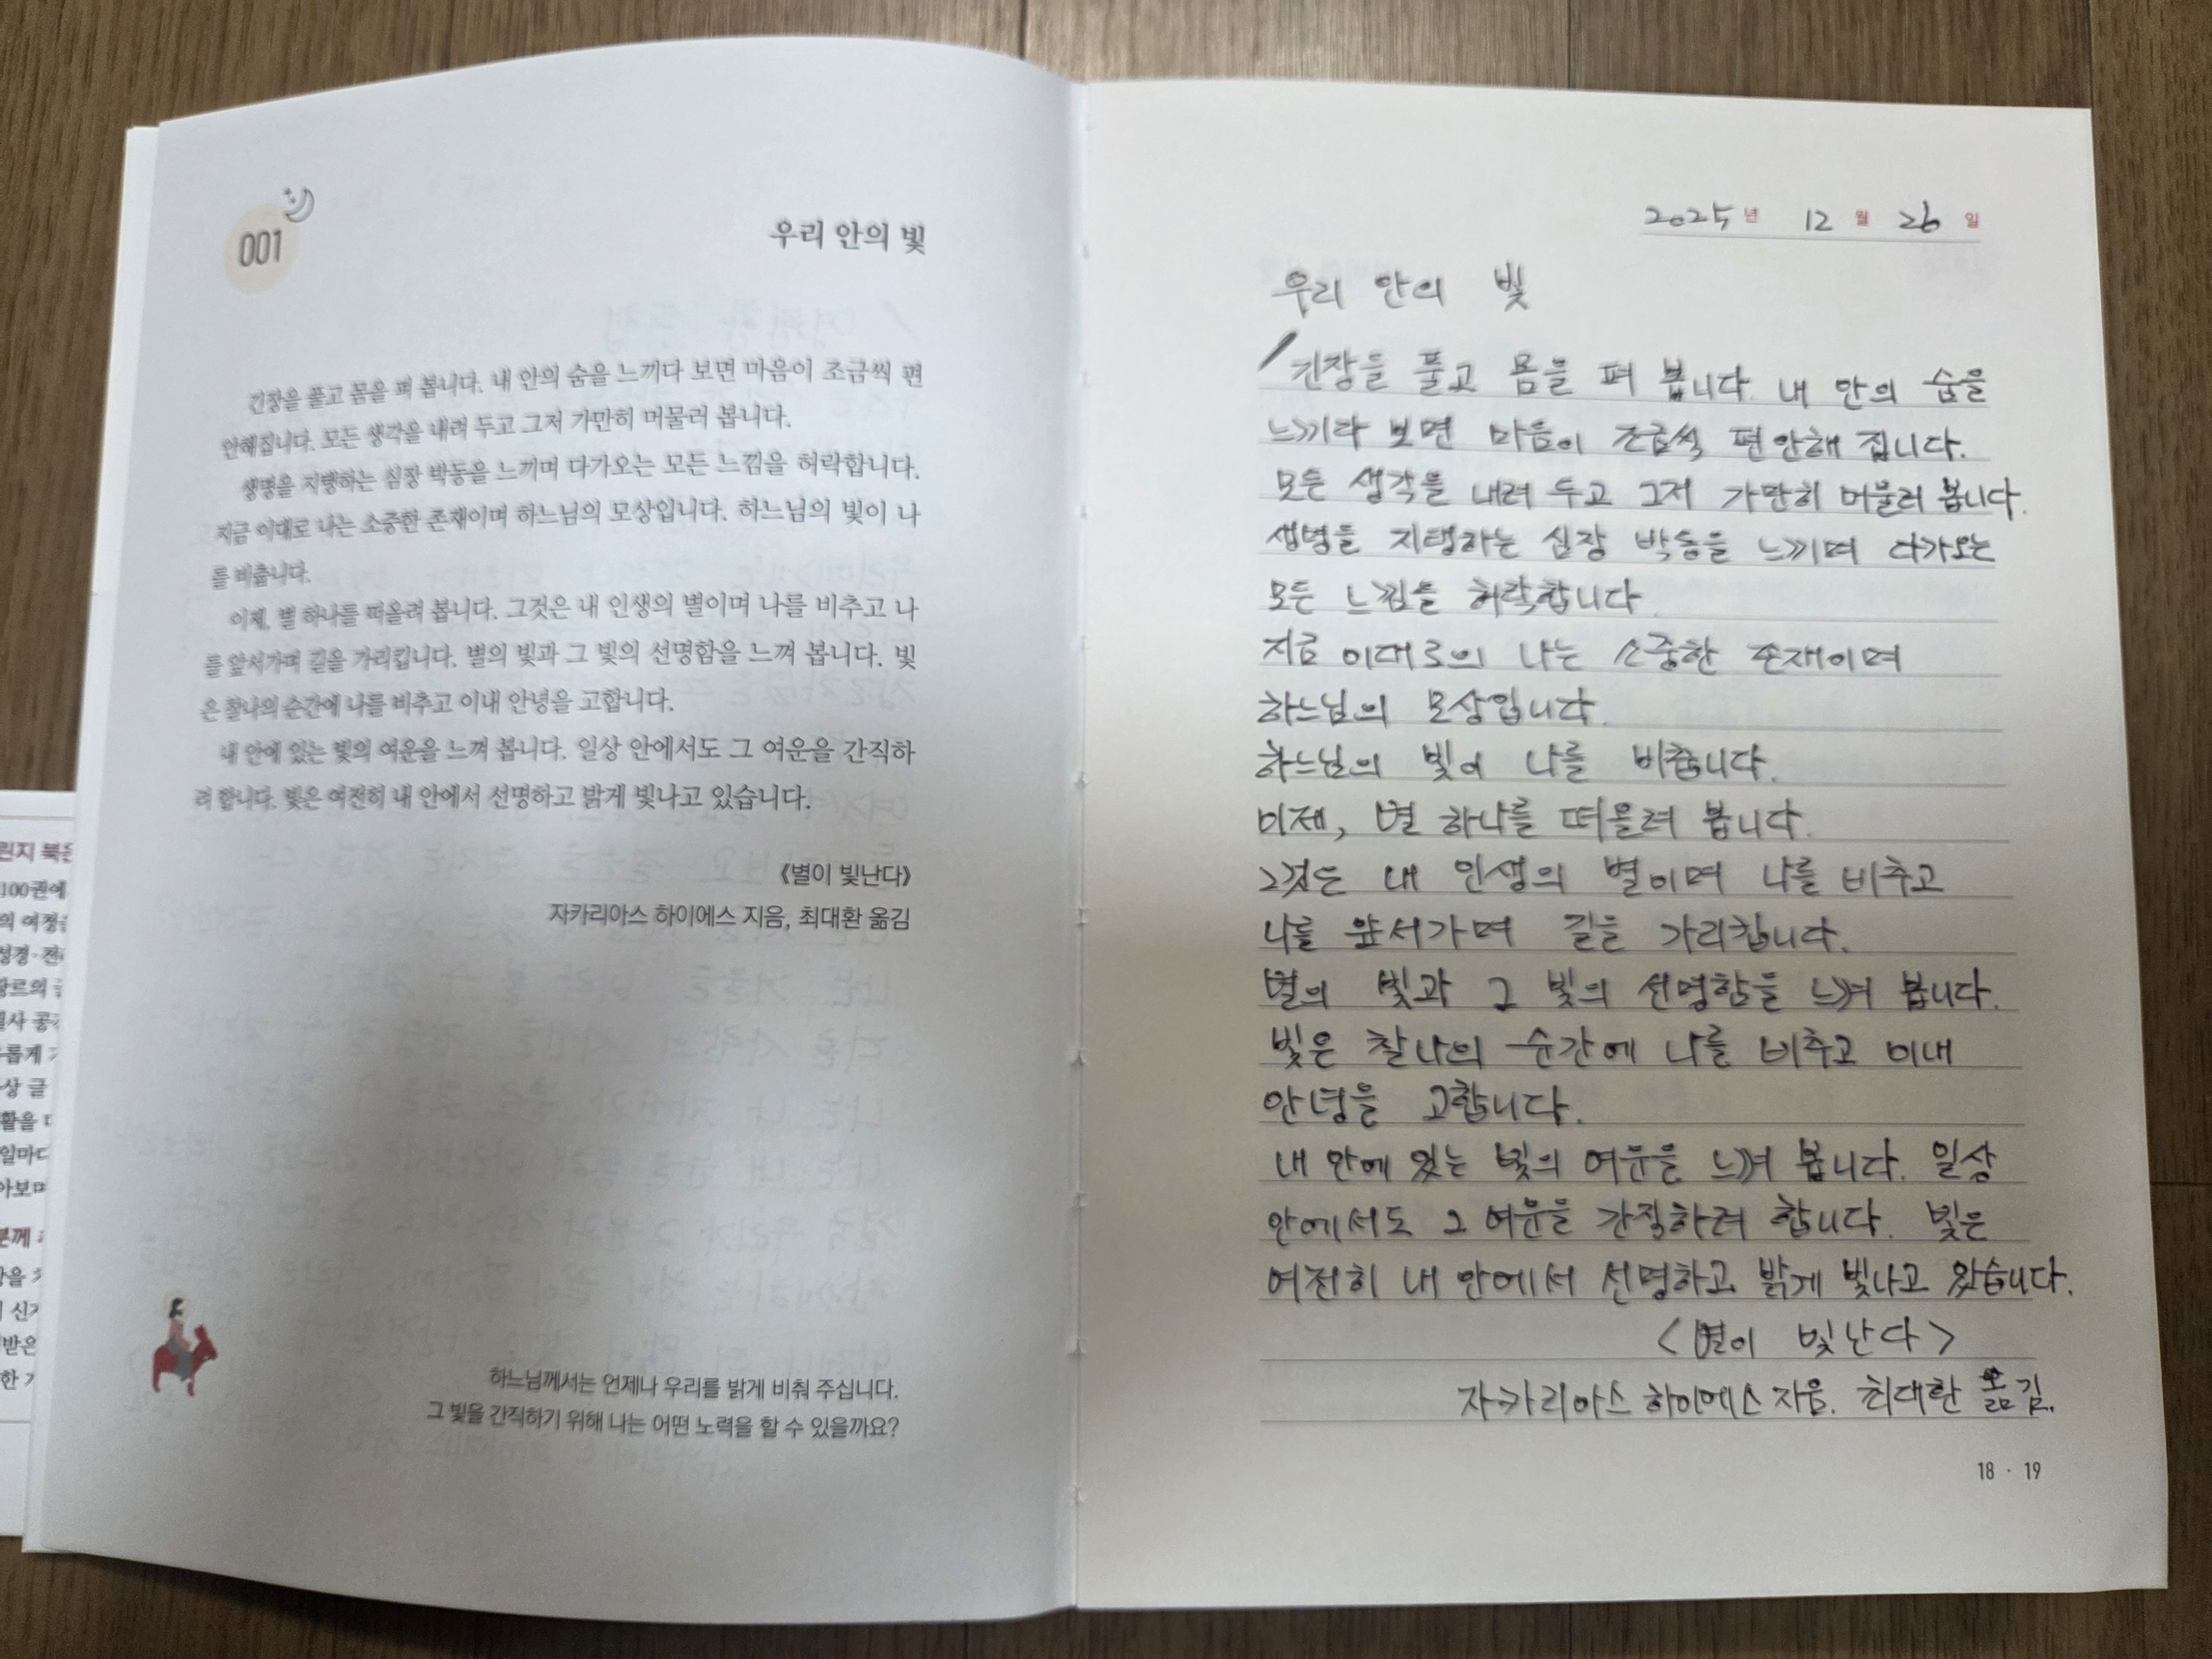 001
우리 안의 빛
긴장을 풀고 몸을 펴 봅니다. 내 안의 숨을 느끼다 보면 마음이 조금씩 편
안해집니다. 모든 생각을 내려 두고 그저 가만히 머물러 봅니다.
생명을 지탱하는 심장 박동을 느끼며 다가오는 모든 느낌을 허락합니다.
지금 이대로 나는 소중한 존재이며 하느님의 모상입니다. 하느님의 빛이 나
를 비춥니다.
이제, 별 하나를 떠올려 봅니다. 그것은 내 인생의 별이며 나를 비추고 나
를 앞서가며 길을 가리킵니다. 별의 빛과 그 빛의 선명함을 느껴 봅니다. 빛
은 찰나의 순간에 나를 비추고 이내 안녕을 고합니다.
내 안에 있는 빛의 여운을 느껴 봅니다. 일상 안에서도 그 여운을 간직하
려 합니다. 빛은 여전히 내 안에서 선명하고 밝게 빛나고 있습니다.
《별이 빛난다》
자카리아스 하이에스 지음, 최대환 옮김
하느님께서는 언제나 우리를 밝게 비춰 주십니다.
그 빛을 간직하기 위해 나는 어떤 노력을 할 수 있을까요?
린지 북은
100권에
의 여정을
성경·전
르의
사 공
롭게
상 글
활을
일마다
아보며
분께
을
신
받은
한
2025년 12월 26일
우리 안의 빛
긴장을 풀고 몸을 펴 봅니다. 내 안의 숨을
느끼다 보면 마음이 조금씩 편안해 집니다.
모든 생각을 내려 두고 그저 가만히 머물러 봅니다.
생명을 지탱하는 심장 박동을 느끼며 다가오는
모든 느낌을 허락합니다.
지금 이대로의 나는 소중한 존재이며
하느님의 모상입니다.
하느님의 빛이 나를 비춥니다.
이제, 별 하나를 떠올려 봅니다.
그것은 내 인생의 별이며 나를 비추고
나를 앞서가며 길을 가리킵니다.
별의 빛과 그 빛의 선명함을 느껴 봅니다.
빛은 찰나의 순간에 나를 비추고 이내
안녕을 고합니다.
내 안에 있는 빛의 여운을 느껴 봅니다. 일상
안에서도 그 여운을 간직하려 합니다. 빛은
여전히 내 안에서 선명하고 밝게 빛나고 있습니다.
<별이 빛난다>
자카리아스 하이에스 지음. 최대환 옮김.
18 · 19